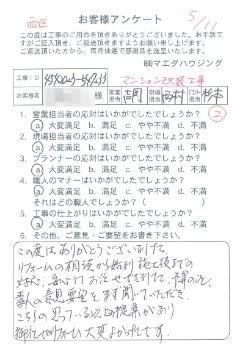 お客様アンケート
5/11
この度は工事のご用命を頂きありがとうございました。お手数で
すがご記入頂き、ご返送頂きますようお願い申し上げます。
ご返送頂いた方から、毎月抽選で感謝品を進呈します。
㈱マエダハウジング
工事ID
マンション改装工事
お客様名 様 営業担当 現場担当 西村
②
1. 営業担当者の応対はいかがでしたでしょうか?
a 大変満足 b. 満足 c. やや不満 d. 不満
2. 現場担当者の応対はいかがでしたでしょうか?
a 大変満足 b. 満足 c. やや不満 d. 不満
3. プランナーの応対はいかがでしたでしょうか?
a 大変満足 b. 満足 c. やや不満 d. 不満
4. 職人のマナーはいかがでしたでしょうか?
a 大変満足 b. 満足 c. やや不満 d. 不満
それはどの職人でしょう( )
5. 工事の仕上がりはいかがでしたでしょうか?
a 大変満足 b. 満足 c. やや不満 d. 不満
6. その他、ご意見・ご要望をお書き下さい。
この度はありがとうございました
リフォームの相談から 施工後まで
安心してお任せできました。
意見要望をまず聞いていただき、
こちらの思っている 以上の提案があり
リフォーム大変よかったです。